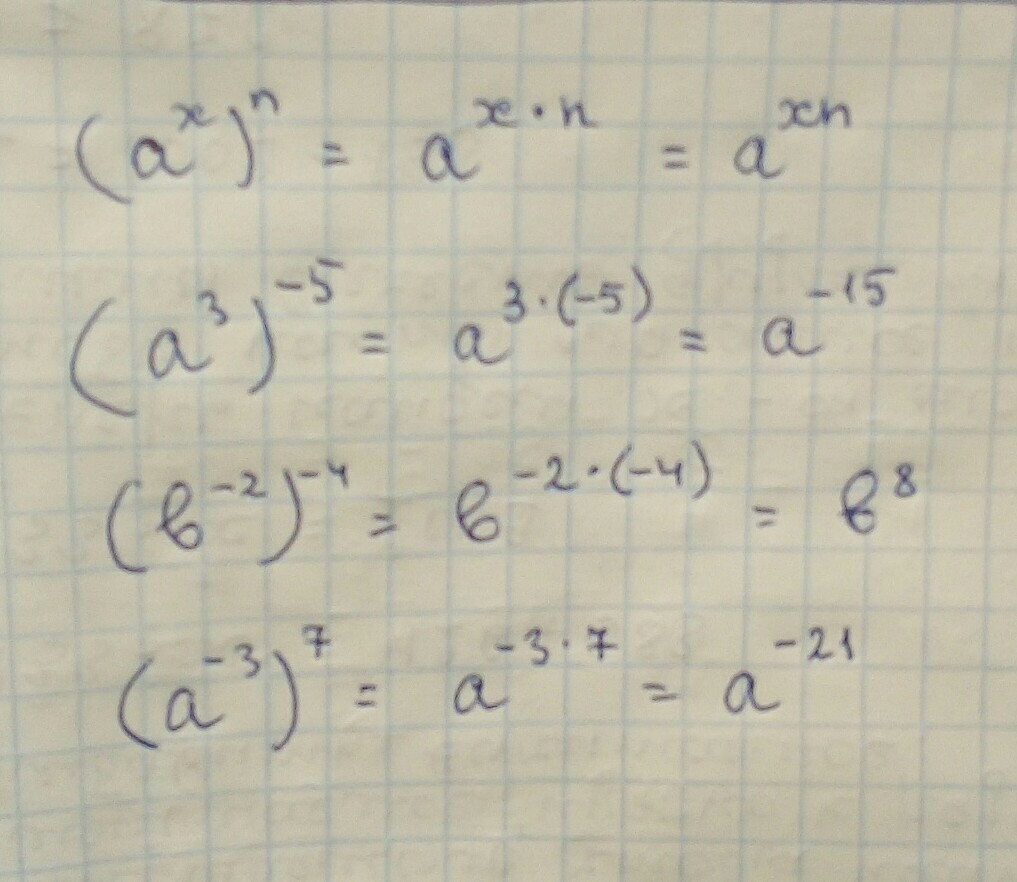 (a^x)^n = a^{x·n} = a^{xn}
(a^3)^{-5} = a^{3·(-5)} = a^{-15}
(b^{-2})^{-4} = b^{-2·(-4)} = b^8
(a^{-3})^7 = a^{-3·7} = a^{-21}